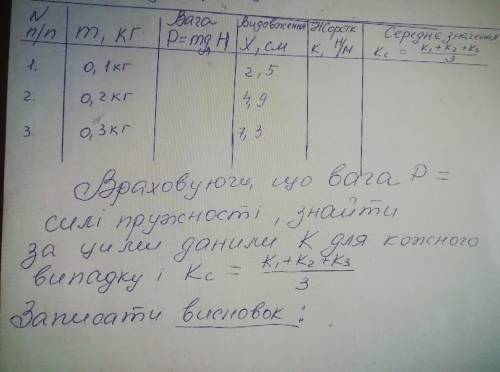 N п/п | m, кг | Вага P=mg, Н | Видовження X, см | Жорстк К, Н/м | Середнє значення Kc = K1+K2+K3 / 3
1. 0,1кг 2,5
2. 0,2кг 4,9
3. 0,3кг 7,3
Враховуючи, що вага P =
силі пружності, знайти
за цими даними К для кожного
випадку і Kc = K1+K2+K3 / 3
Записати висновок: